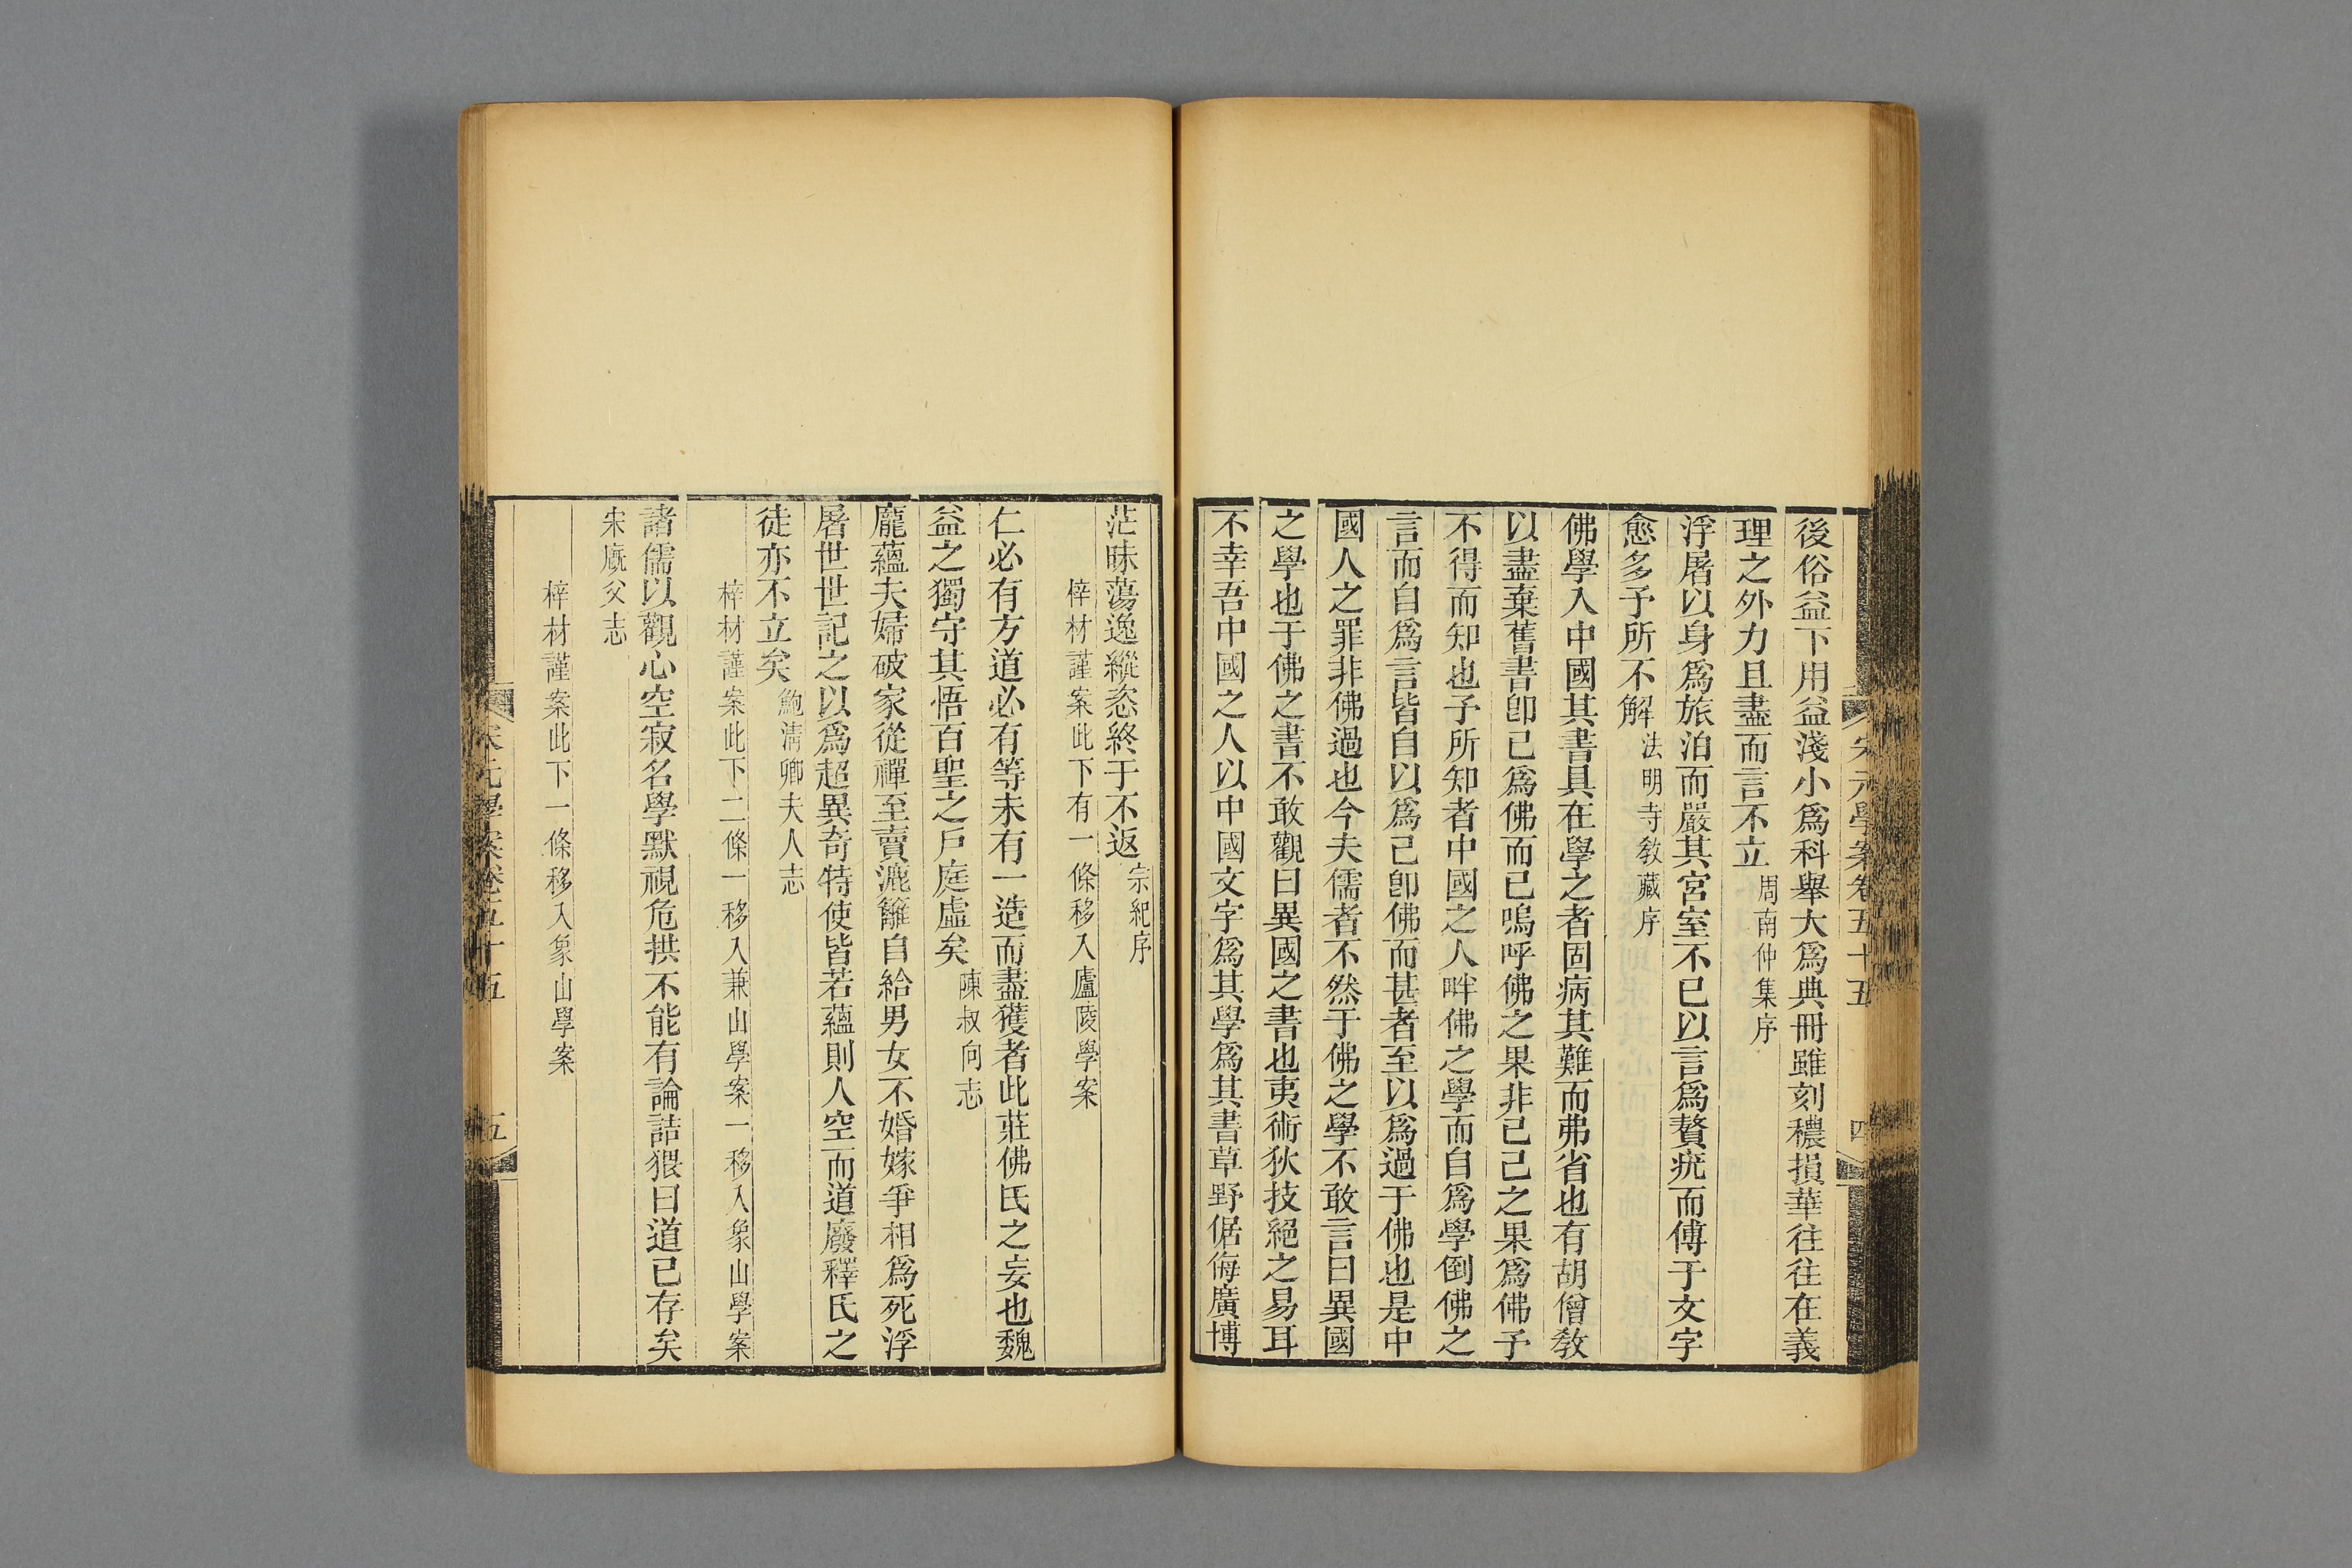 宋元學案卷五十五 四
後俗益下用益淺小爲科舉大爲典冊雖刻穠損華往往在義
理之外力且盡而言不立周南仲集序
浮屠以身爲旅泊而嚴其宮室不已以言爲贅疣而傳于文字
愈多予所不解法明寺敎藏序
佛學入中國其書具在學之者固病其難而弗省也有胡僧敎
以盡棄舊書卽己爲佛而已嗚呼佛之果非己己之果爲佛予
不得而知也予所知者中國之人畔佛之學而自爲學倒佛之
言而自爲言皆自以爲己卽佛而甚者至以爲過于佛也是中
國人之罪非佛過也今夫儒者不然于佛之學不敢言曰異國
之學也于佛之書不敢觀曰異國之書也夷術狄技絕之易耳
不幸吾中國之人以中國文字爲其學爲其書草野倨侮廣博
茫昧蕩逸縱恣終于不返宗紀序
梓材謹案此下有一條移入廬陵學案
仁必有方道必有等未有一造而盡獲者此莊佛氏之妄也魏
益之獨守其悟百聖之戶庭虛矣陳叔向志
龐蘊夫婦破家從禪至賣漉籬自給男女不婚嫁爭相爲死浮
屠世世記之以爲超異奇特使皆若蘊則人空而道廢釋氏之
徒亦不立矣鮑淸卿夫人志
梓材謹案此下二條一移入兼山學案一移入象山學案
諸儒以觀心空寂名學默視危拱不能有論詰猥曰道已存矣
宋廐父志
梓材謹案此下一條移入象山學案
宋元學案卷五十五 五